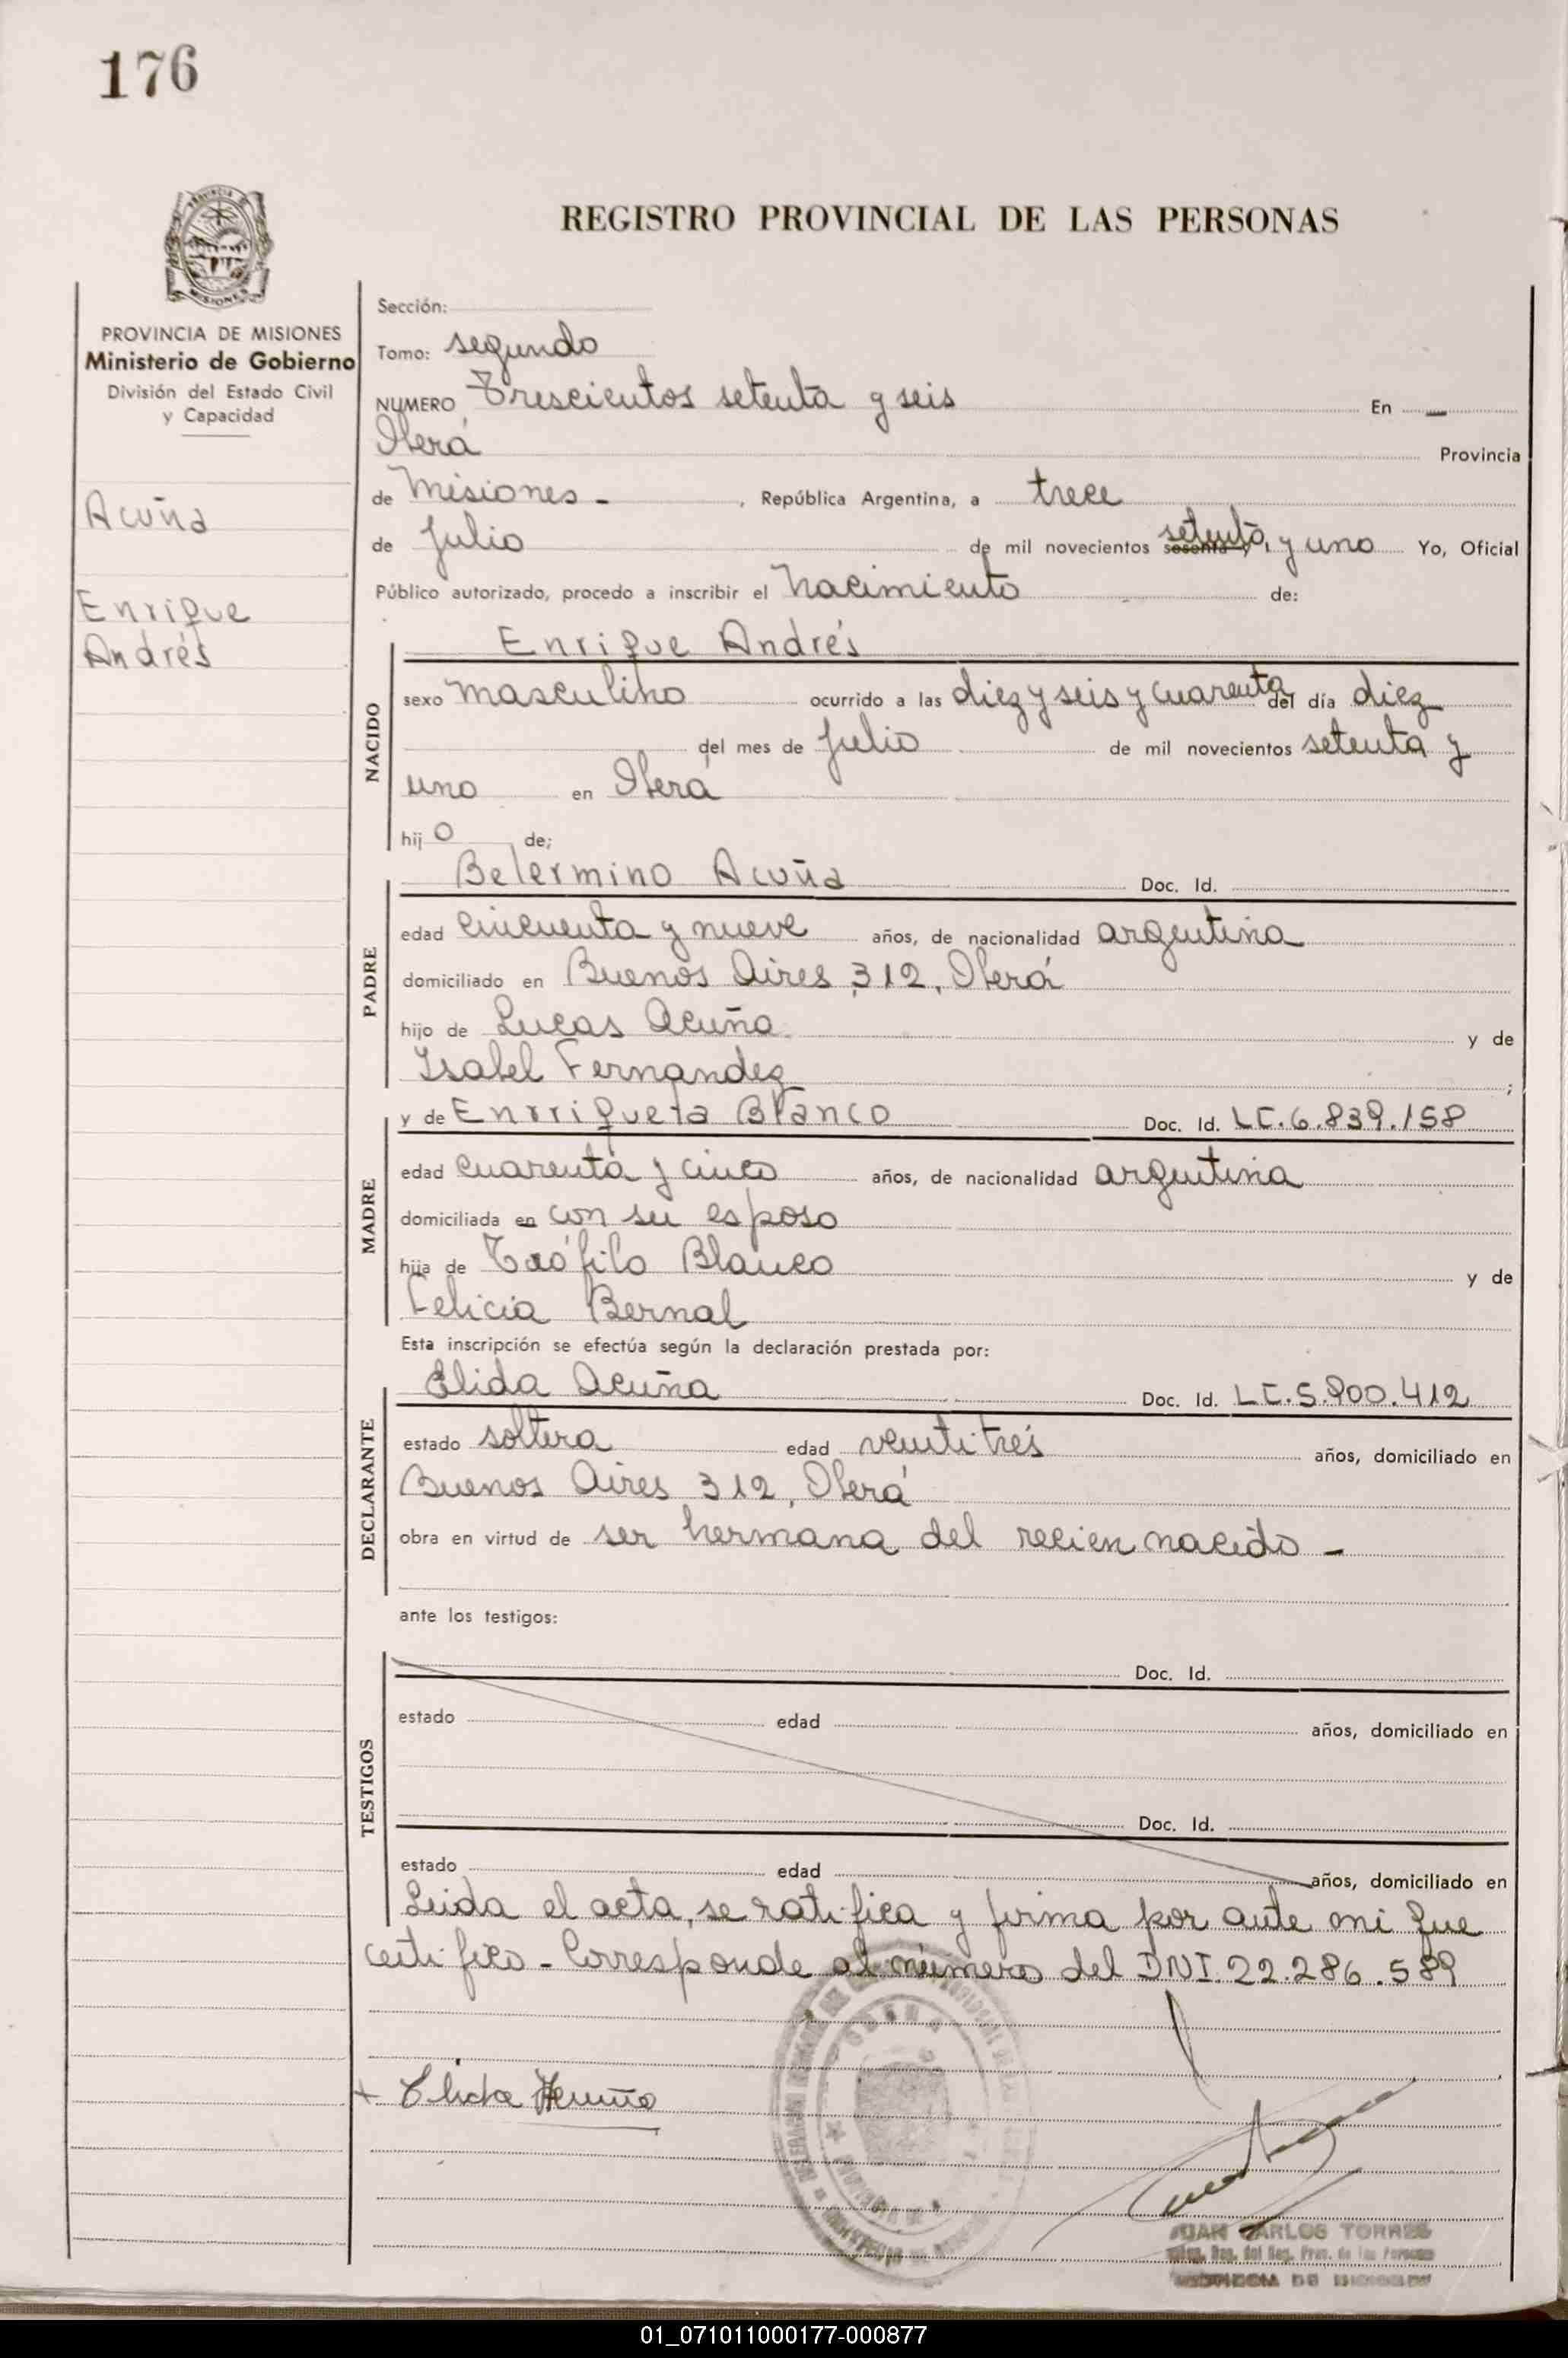 176
PROVINCIA
MISIONES
REGISTRO PROVINCIAL DE LAS PERSONAS
PROVINCIA DE MISIONES
Ministerio de Gobierno
División del Estado Civil
y Capacidad
Acuña
Enrique
Andrés
Sección:
Tomo: segundo
NUMERO Trescientos setenta y seis En —
Oberá Provincia
de Misiones - , República Argentina, a trece
de Julio de mil novecientos sesenta y setenta y uno Yo, Oficial
Público autorizado, procedo a inscribir el nacimiento de:
Enrique Andrés
NACIDO
sexo masculino ocurrido a las diez y seis y cuarenta del día diez
del mes de Julio de mil novecientos setenta y
uno en Oberá
hijo de;
Belermino Acuña Doc. Id.
PADRE
edad cincuenta y nueve años, de nacionalidad argentina
domiciliado en Buenos Aires 312, Oberá
hijo de Lucas Acuña y de
Isabel Fernandez ;
y de Enrriqueta Blanco Doc. Id. LC.6.839.158
MADRE
edad cuarenta y cinco años, de nacionalidad argentina
domiciliada en con su esposo
hija de Teófilo Blanco y de
Felicia Bernal
Esta inscripción se efectúa según la declaración prestada por:
Elida Acuña Doc. Id. LC.5.900.412
DECLARANTE
estado soltera edad veintitrés años, domiciliado en
Buenos Aires 312, Oberá
obra en virtud de ser hermana del recien nacido -
ante los testigos:
Doc. Id.
TESTIGOS
estado edad años, domiciliado en
Doc. Id.
estado edad años, domiciliado en
Leida el acta, se ratifica y firma por ante mi que
certifico - Corresponde al número del DNI.22.286.589
Elida Acuña
JUAN CARLOS TORRES
Reg. del Reg. Prov. de las Personas
PROVINCIA DE MISIONES
01_071011000177-000877